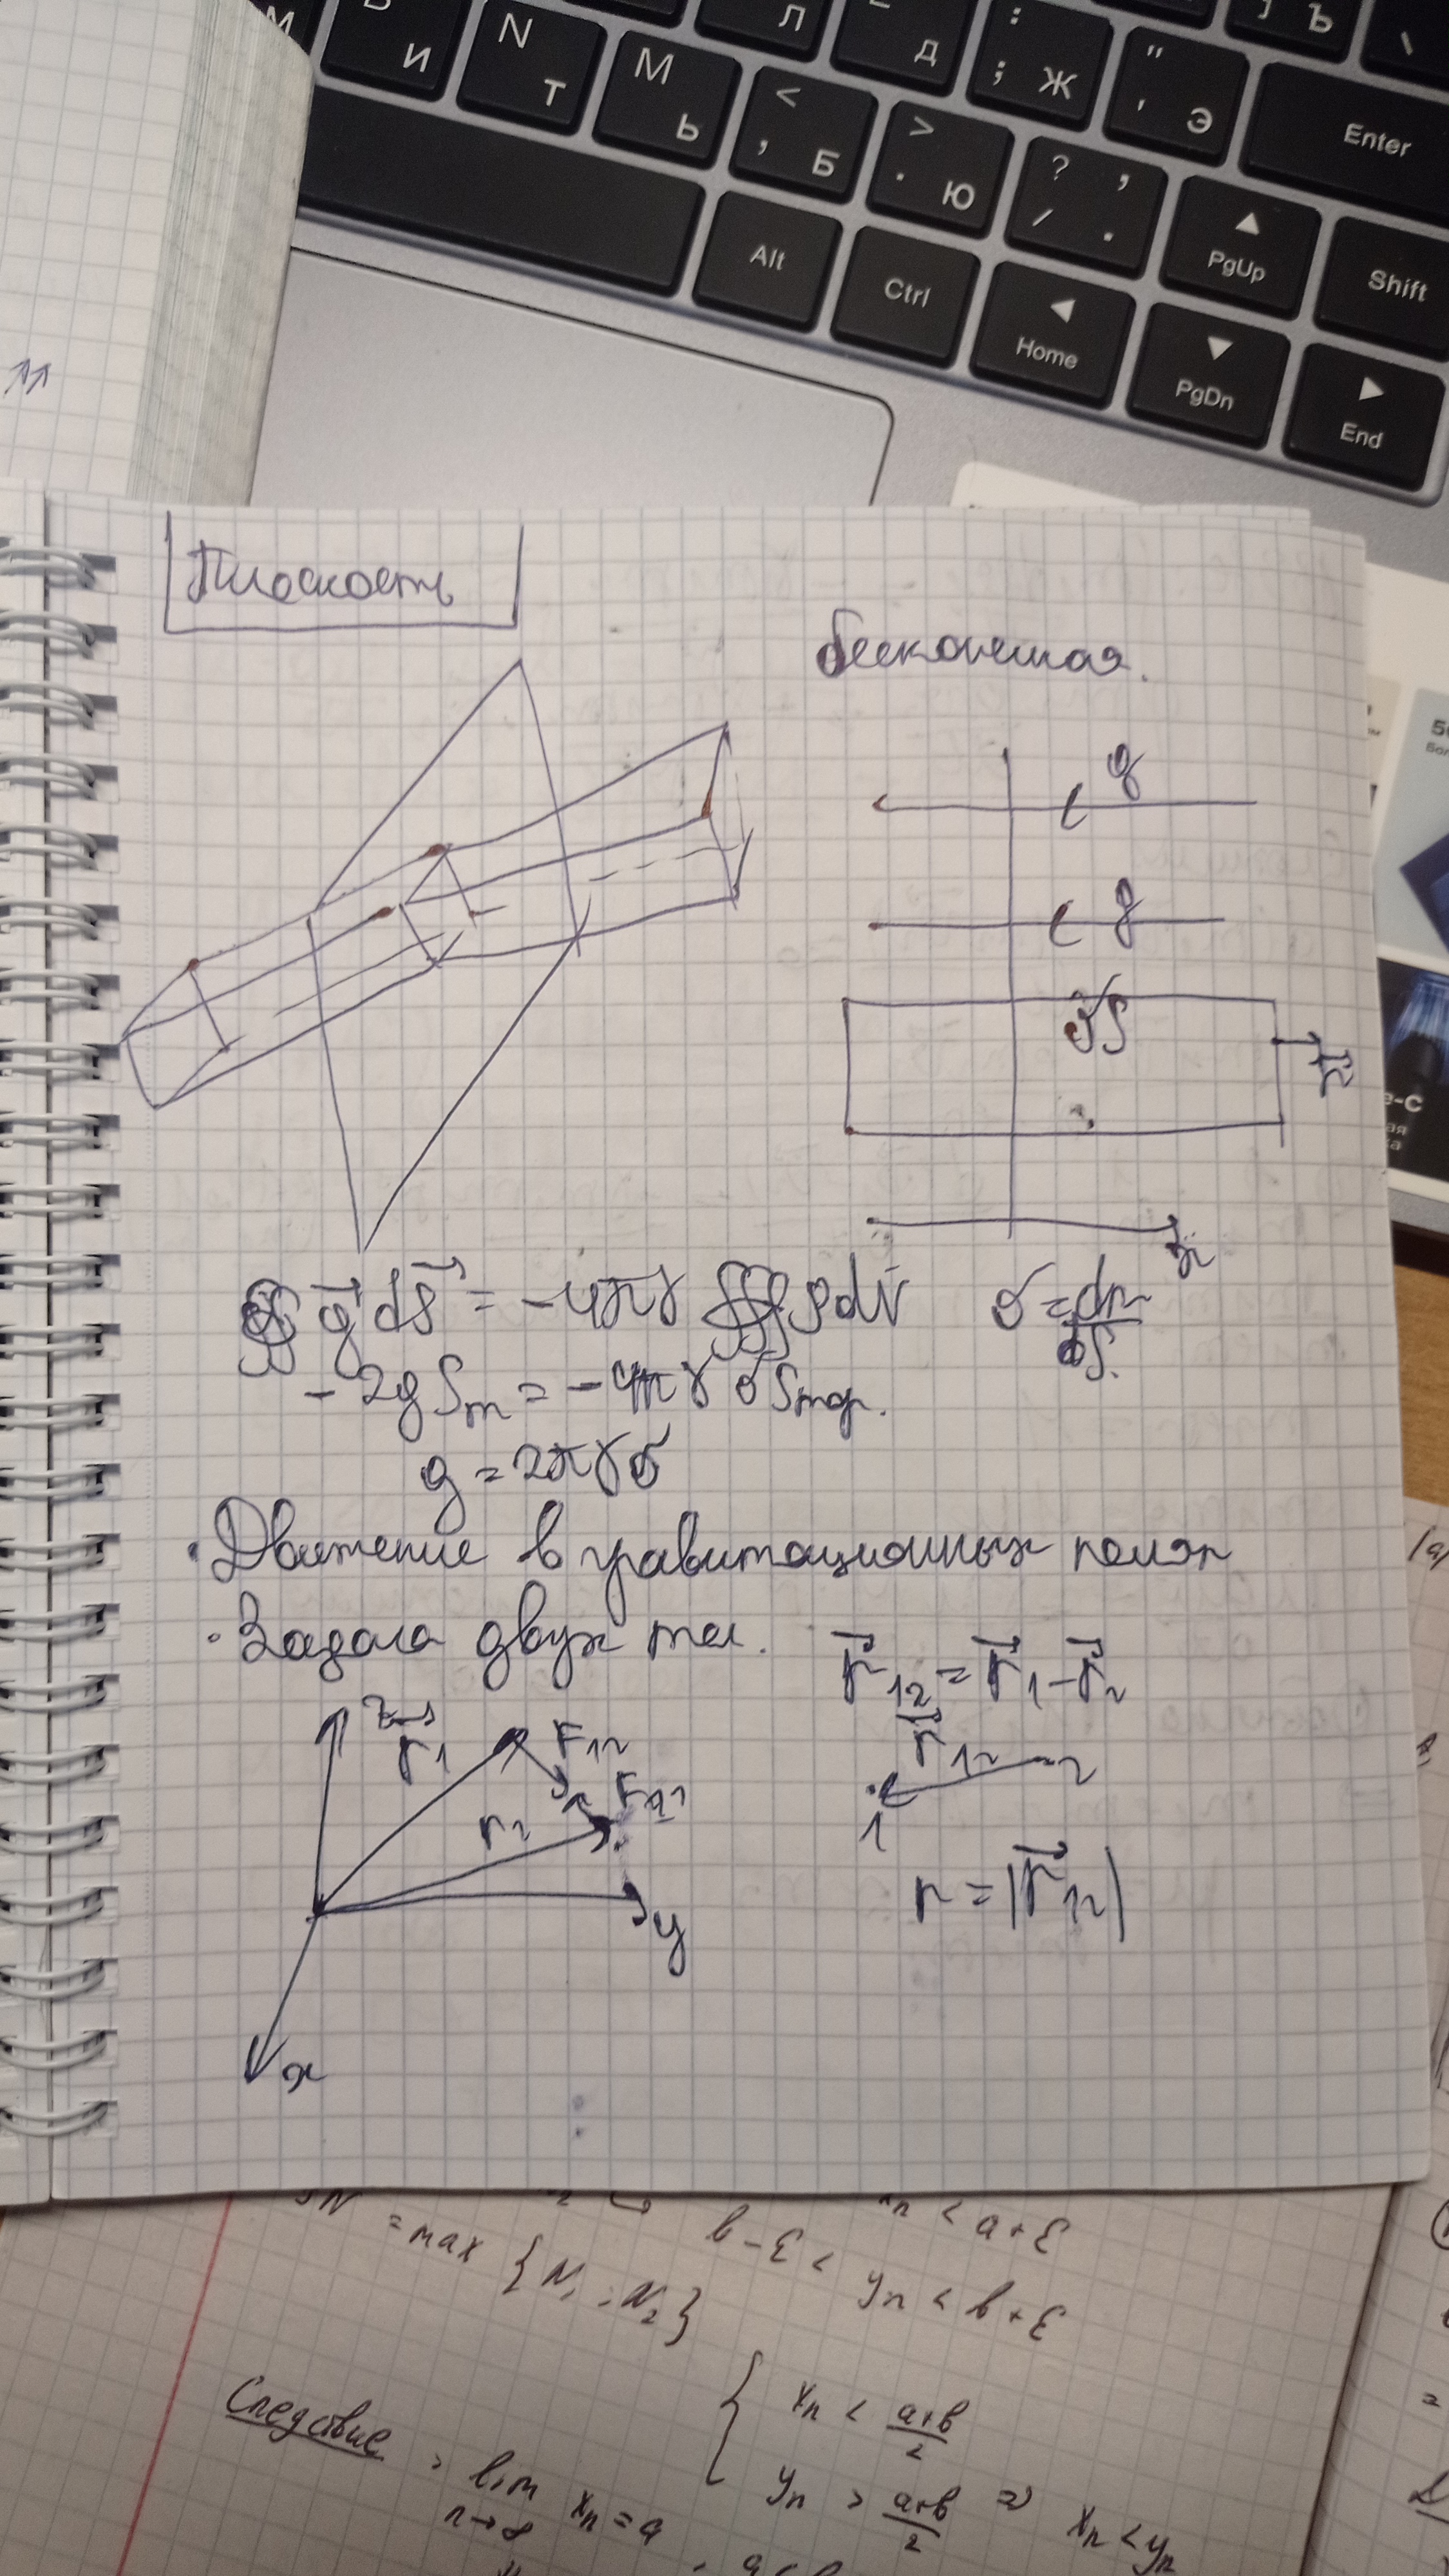 И
N
Т
М
Ь
<
,
Б
Л
Д
>
.
Ю
:
;
Ж
?
,
/
.
"
'
Э
Ъ
Enter
Alt
Ctrl
Home
PgUp
PgDn
Shift
End
Плоскость
бесконечная.
g
g
S
n⃗
x
∯ g⃗ dS⃗ = -4πγ ∭ ρdV σ = dm/dS.
-2gSт = -4πγσSтор.
g = 2πγσ
• Движение в гравитационных полях
• Задача двух тел. r⃗12 = r⃗1 - r⃗2
z r⃗1 F12 r⃗12
r2 F21 1 2
r = |r⃗12|
y
x
= max {N1; N2}
b-ε < yn < b+ε
xn < a+ε
Следствие: lim xn = a
n→∞
xn < a+b/2
yn > a+b/2 ⇒ xn < yn